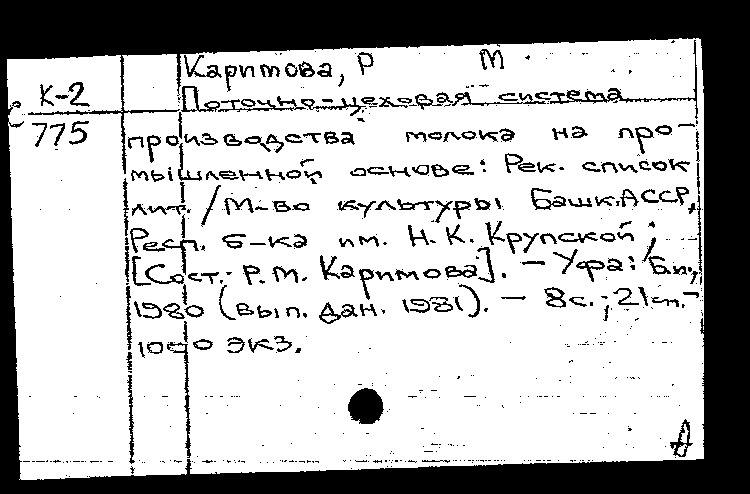 Каримова, Р М.
С К-2
775
Поточно-цеховая система
производства молока на про-
мышленной основе: Рек. список
лит. / М-во культуры Башк.АССР,
Респ. б-ка им. Н. К. Крупской;
[Сост.: Р. М. Каримова]. – Уфа: Б.и.,
1980 (вып. дан. 1981). – 8с.; 21см.-
1000 экз.